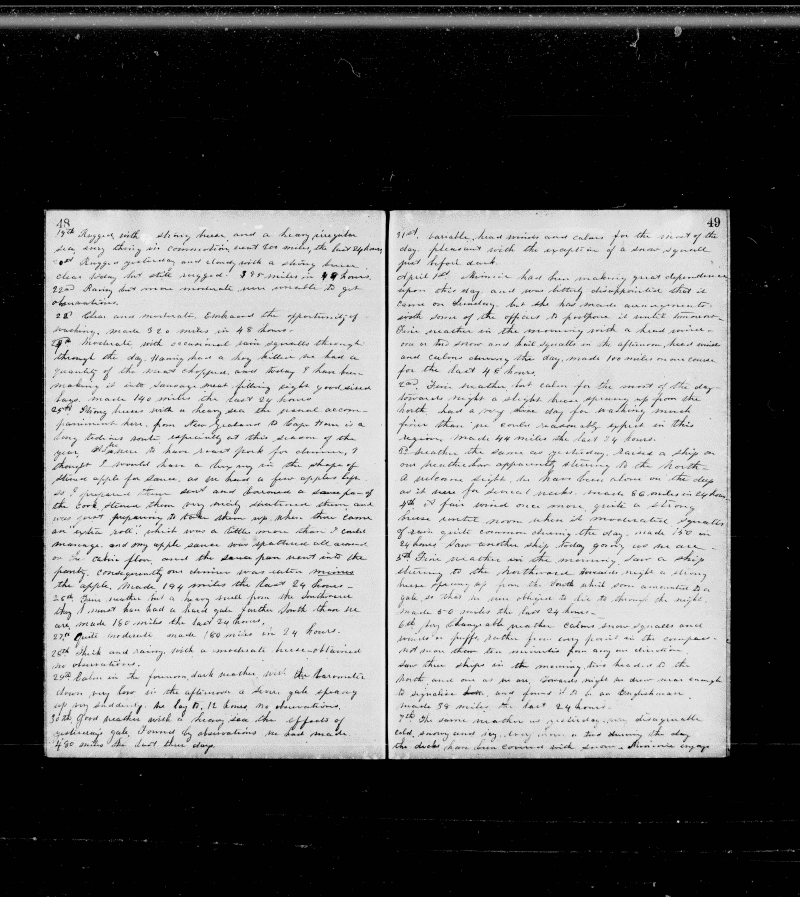 48
19th Rugged, with strong breeze, and a heavy irregular
sea, every thing in commotion, went 200 miles, the last 24 hours,
21st Rugged yesterday and cloudy with a strong breeze,
clear today but still rugged. 395 miles in 48 hours.
22nd Rainy but more moderate, were unable to get
observations.
23d Clear and moderate. Embraced the opportunity of
washing, made 320 miles in 48 hours.
24th Moderate with occasional rain squalls through
through the day. Having had a hog killed we had a
quantity of the meat chopped, and today I have been
making it into sausage meat filling eight good sized
bags. made 140 miles the last 24 hours
25th Strong breeze with a heavy sea the usual accom-
paniment here, from New Zealand to Cape Horn is a
long tedious route, especially at this season of the
year, to have roast pork for dinner, I
thought I would have a luxury in the shape of
stewed apple for sauce, as we had a few apples left
so I prepared them and borrowed a sauce pan of
the cook stewed them very nicely sweetened them and
was just preparing to take them up when there came
an "extra roll" which was a little more than I could
manage, and my apple sauce was spattered all around
on the cabin floor and the sauce pan went into the
pantry, consequently our dinner was eaten minus
the apple, Made 194 miles the last 24 hours.
26th Fine weather but a heavy swell from the Southward
they must have had a hard gale farther South than we
are, made 180 miles the last 24 hours,
27th Quite moderate made 180 miles in 24 hours.
28th Thick and rainy, with a moderate breeze obtained
no observations.
29th Calm in the forenoon, dark weather, with the Barometer
down very low in the afternoon a severe gale sprang
up very suddenly. We lay to, 12 hours no observations.
30th Good weather with a heavy sea the effects of
yesterday's gale, Found by observations we had made
480 miles the last three days.
49
31st variable, head winds and calms for the most of the
day pleasant with the exception of a snow squall
just before dark.
April 1st Minnie had been making great dependence
upon this day, and was bitterly disappointed that it
came on Sunday, but she has made arrangements
with some of the officers to postpone it until tomorrow.
Fine weather in the morning with a head wind
one or two snow and hail squalls in the afternoon, head winds
and calms during the day, made 100 miles on our course
for the last 48 hours.
2nd Fine weather, but calm for the most of the day
towards night a slight breeze sprang up from the
north had a very fine day for washing much
finer than we could reasonably expect in this
region, made 44 miles the last 24 hours.
3d weather the same as yesterday, raised a ship on
our weather bow apparently steering to the north.
A welcome sight. We have been alone on the deep
as it were for several weeks. made 86 miles in 24 hours
4th A fair wind once more, quite a strong
breeze until noon when it moderated squalls
of rain quite common during the day, made 150 in
24 hours Saw another ship today going as we are.
5th Fine weather in the morning, Saw a ship
steering to the northward towards night a strong
breeze sprang up from the South which soon amounted to a
gale, so that we were obliged to lie to through the night.
made 50 miles the last 24 hours.
6th Very Changeable weather Calms snow squalls and
winds in puffs, rather from every point in the compass.
not more than ten minutes from any one direction.
Saw three ships in the morning, two headed to the
North and one as we are, towards night we drew near enough
to signalize and found it to be an Englishman,
made 38 miles the last 24 hours.
7th The same weather as yesterday, very disagreeable
cold, snowy and icy, every hour or two during the day
the decks have been covered with snow. Minnie enjoys